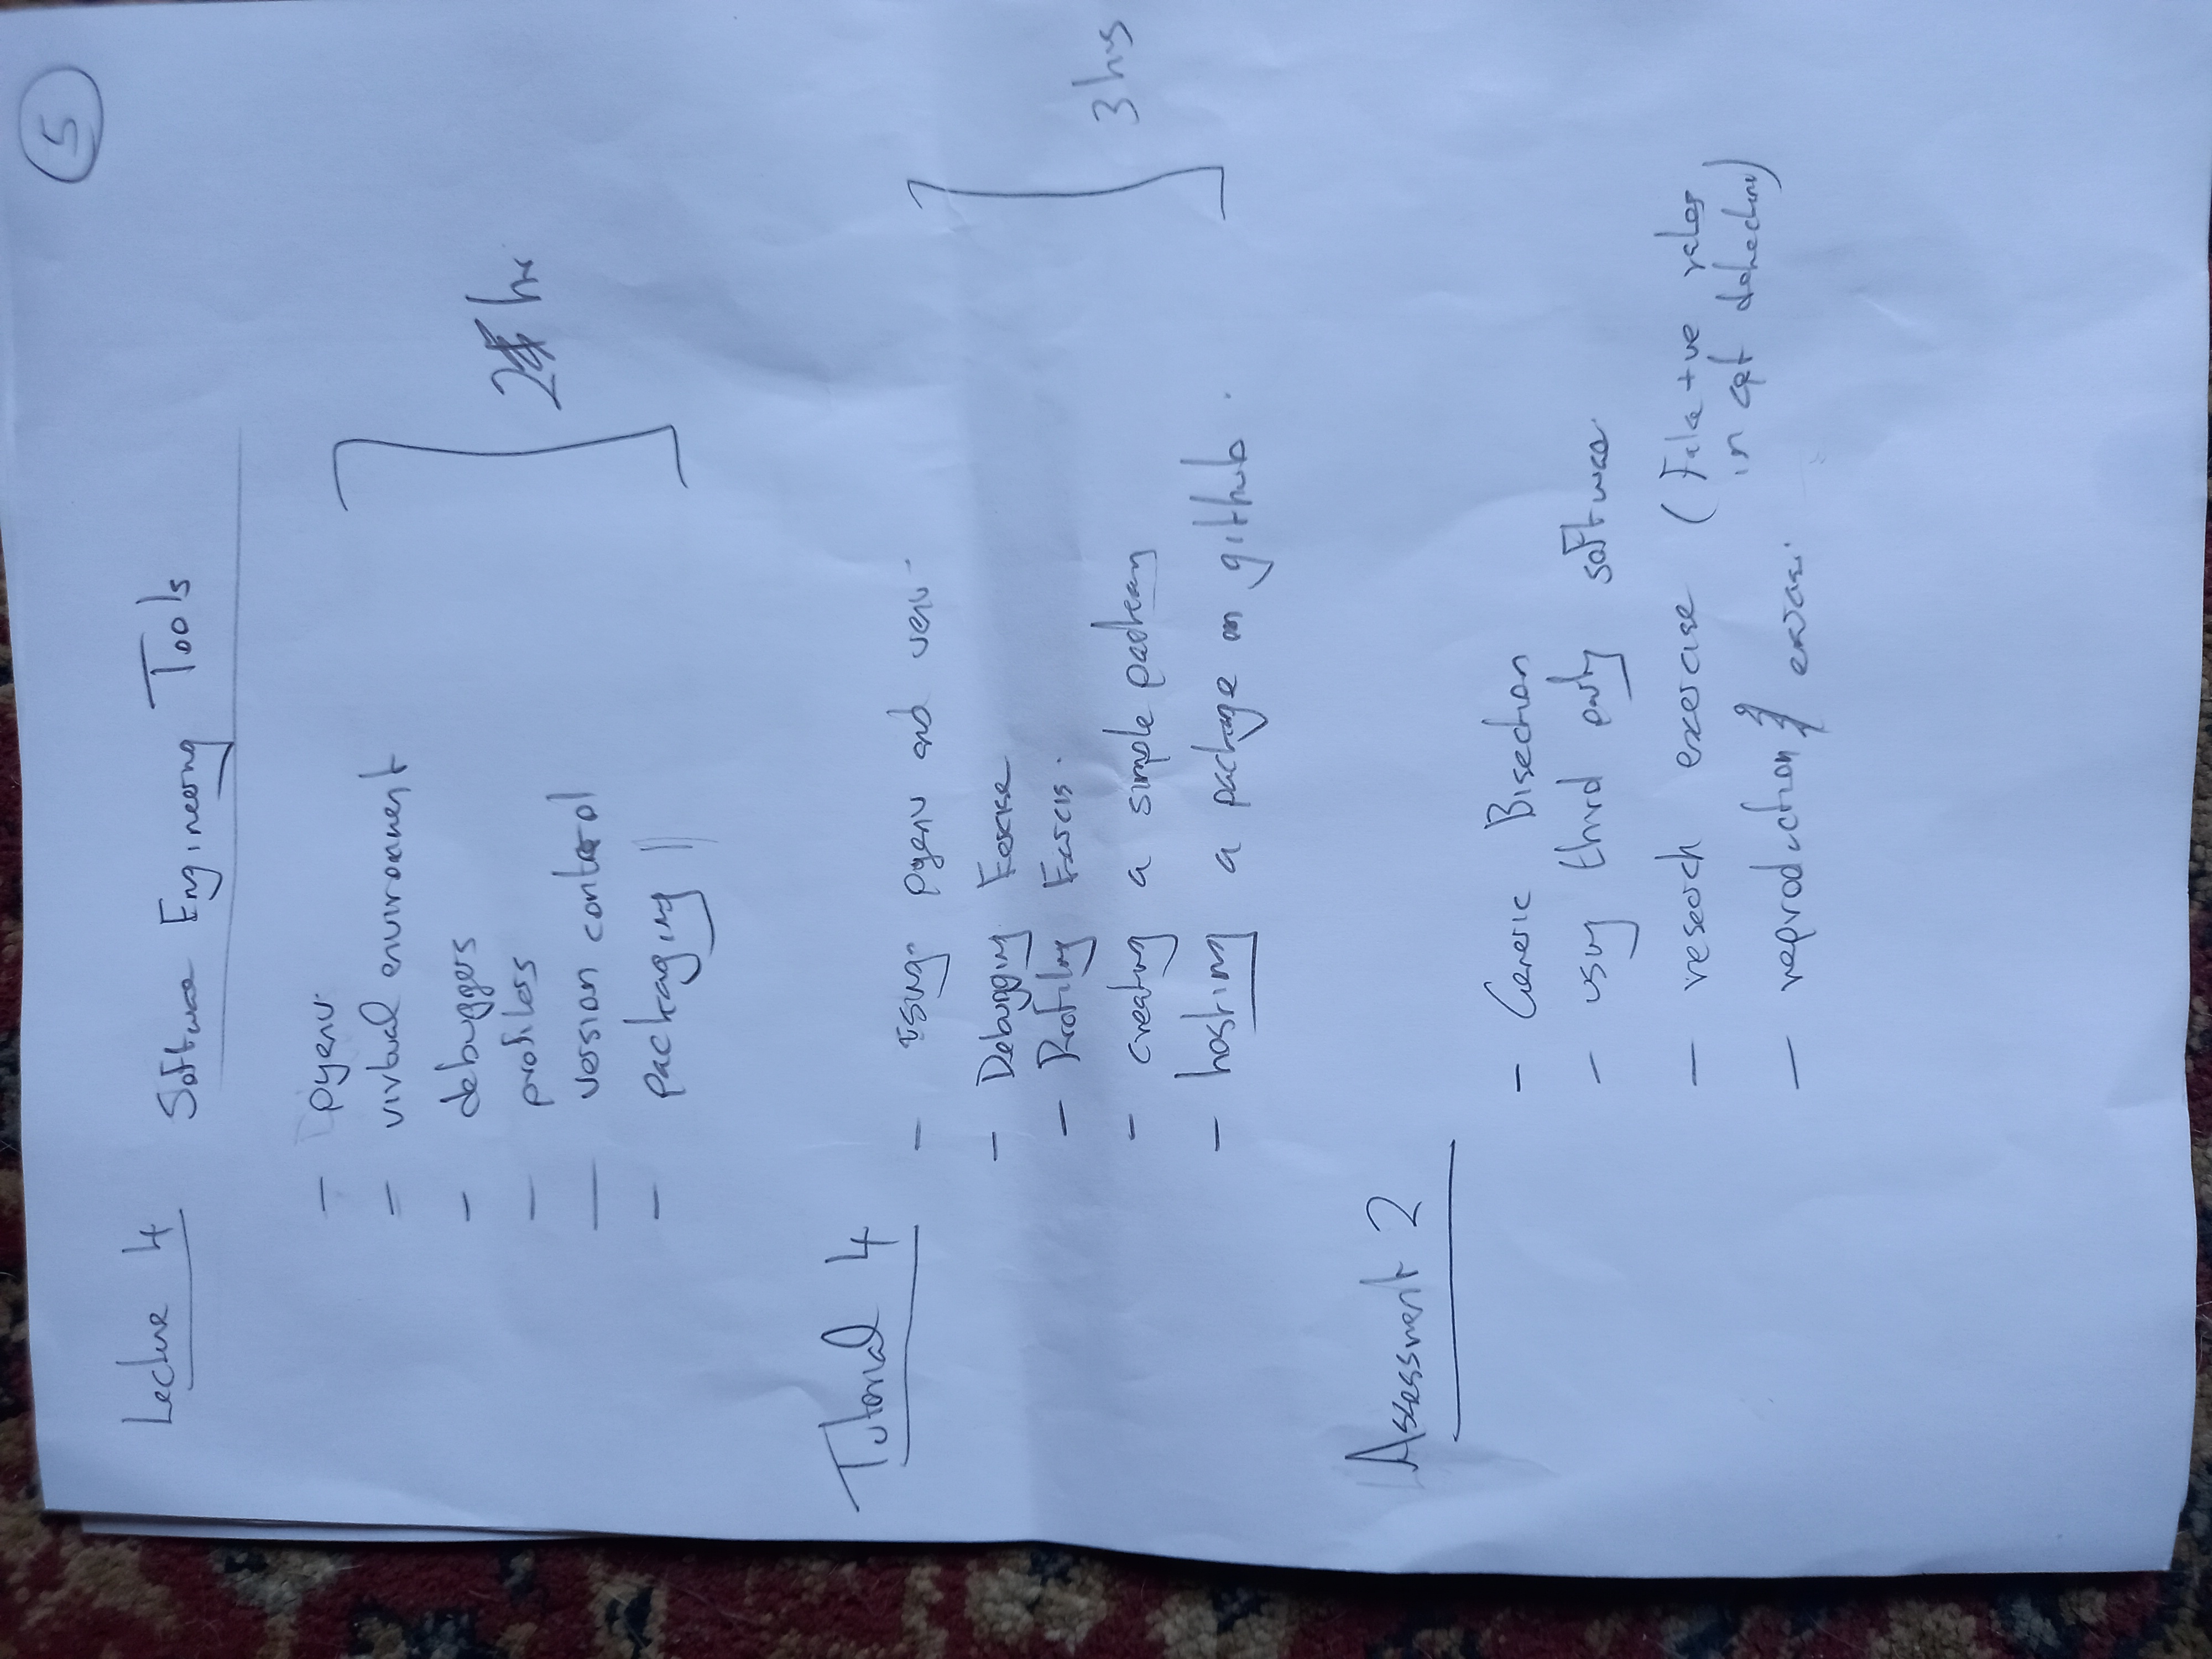 5
Lecture 4 Software Engineering Tools
- pyenv
- virtual environment
- debuggers
- profilers
- version control
- packaging
2 hr
Tutorial 4
- using pyenv and venv
- Debugging Exercise
- Profiling Exercis.
- creating a simple
- hosting a package on github.
3 hrs
Assessment 2
- Generic Bisection
- using third party software
- research exercise (False +ve rates
in cpt detection)
- reproduction